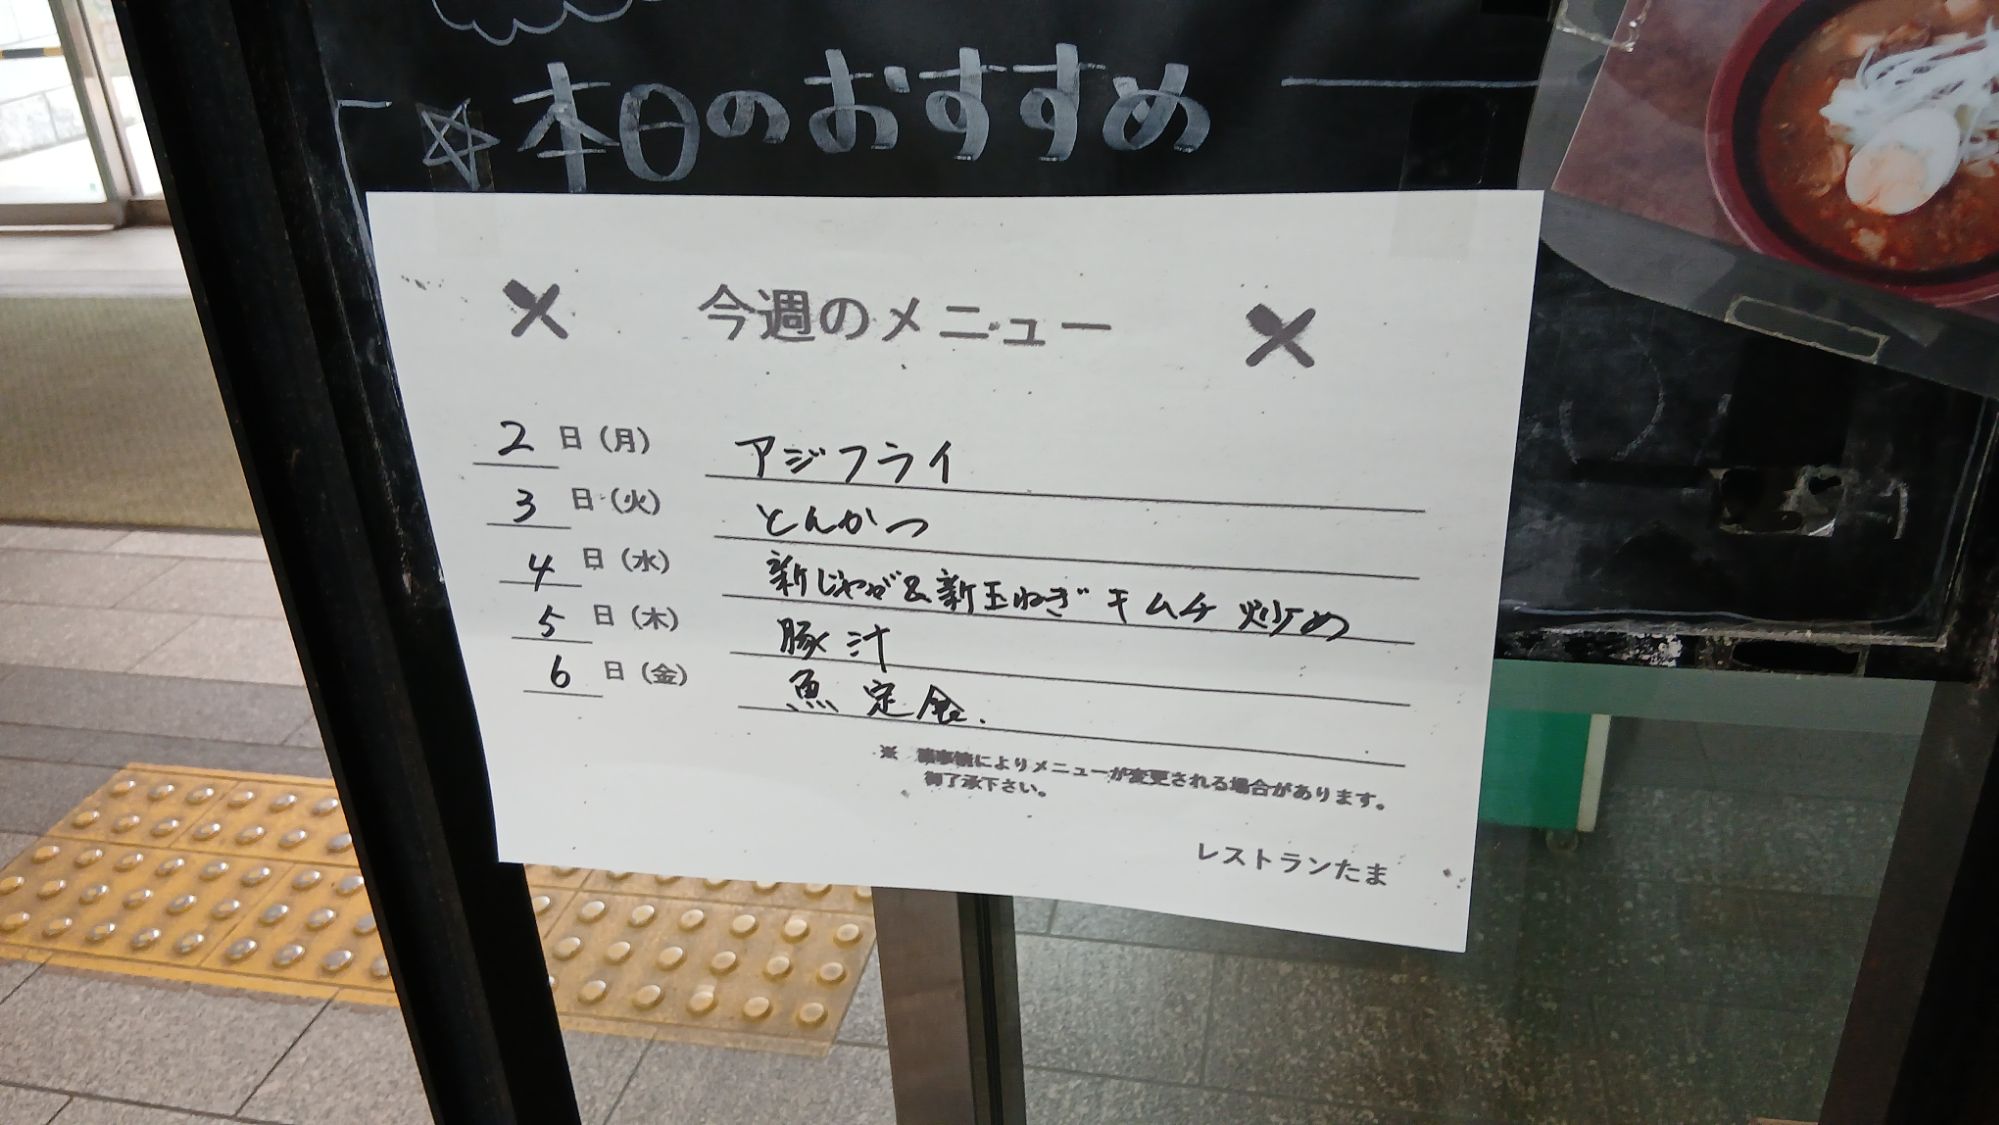 ☆本日のおすすめ
今週のメニュー
2日(月) アジフライ
3日(火) とんかつ
4日(水) 新じゃが&新玉ねぎ キムチ炒め
5日(木) 豚汁
6日(金) 魚定食.
※ 諸事情によりメニューが変更される場合があります。
御了承下さい。
レストランたま